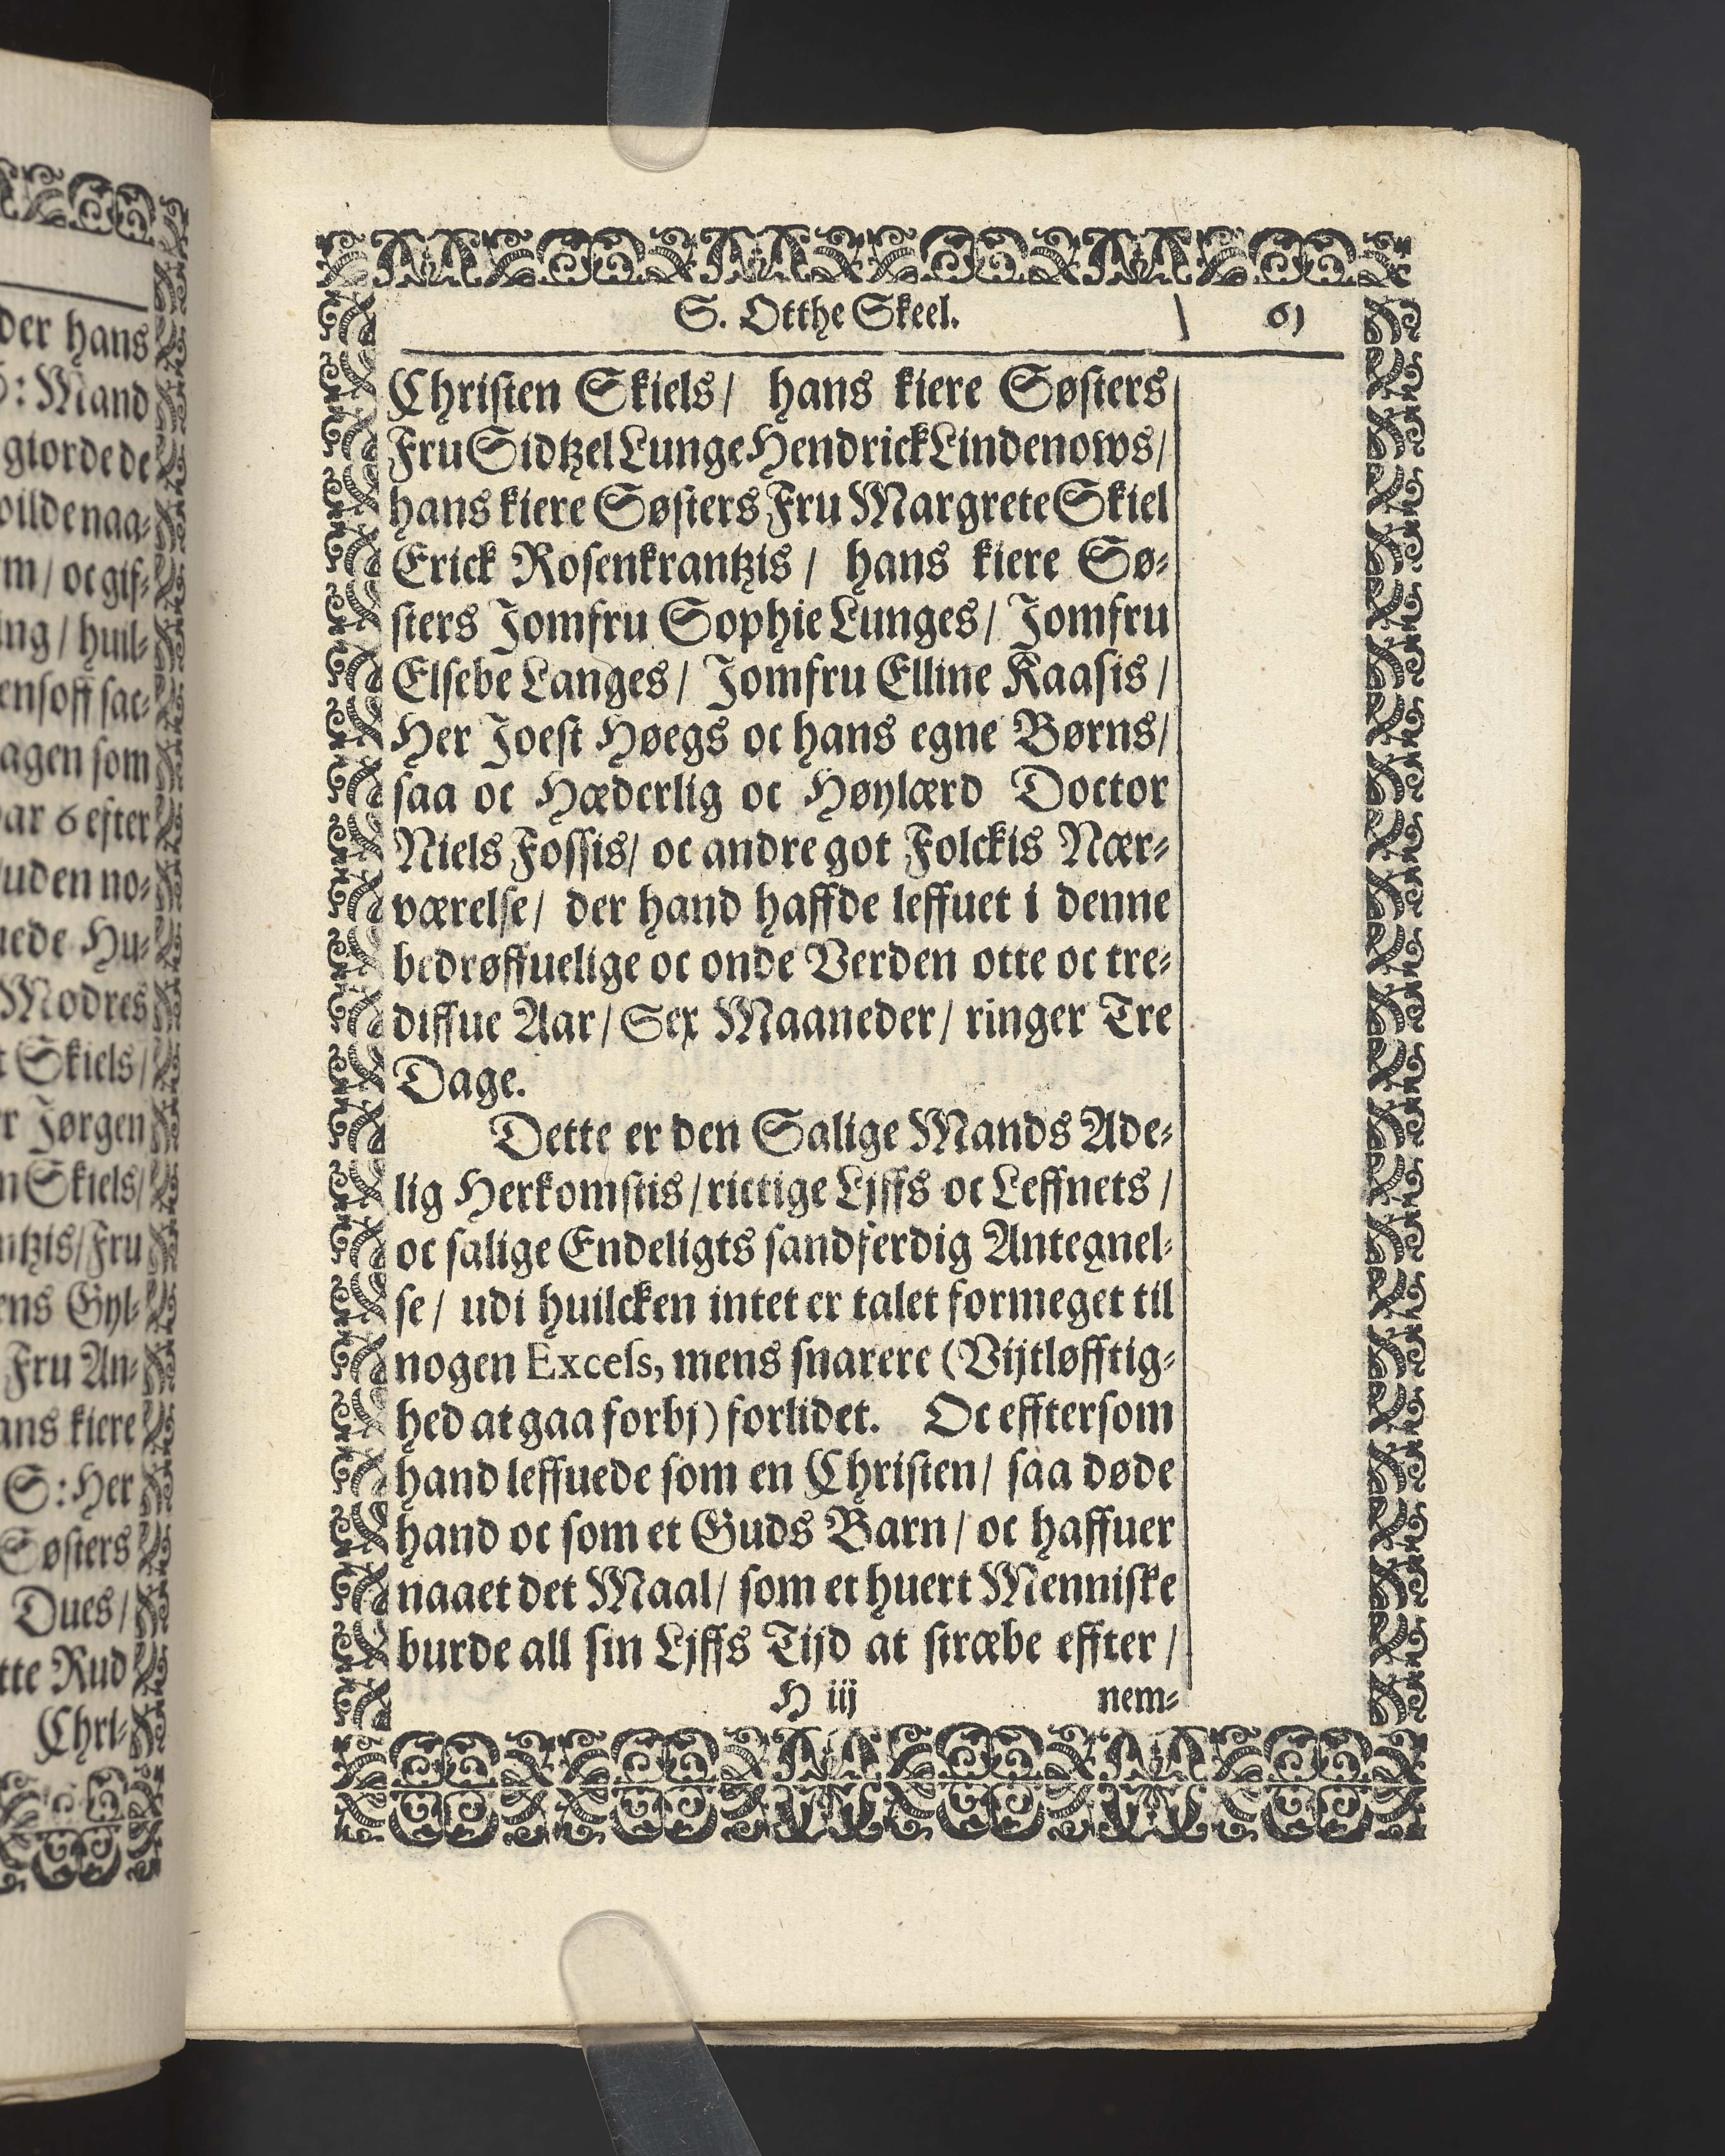 der hans
S: Mand
giorde de
vilde naa⸗
m/ oc gif⸗
ing/ huil⸗
ensoff sac⸗
agen som
ar 6 efter
uden no⸗
uede Hu⸗
Modres
t Skiels/
r Jørgen
n Skiels/
ntzis/ Fru
ens Gyl⸗
Fru An⸗
ans kiere
S: Her
Søsters
Dues/
tte Rud
Chri⸗
S. Otthe Skeel. 61
Christen Skiels/ hans kiere Søsters
Fru Sidtzel Lunge Hendrick Lindenows/
hans kiere Søsters Fru Margrete Skiel
Erick Rosenkrantzis/ hans kiere Sø⸗
sters Jomfru Sophie Lunges/ Jomfru
Elsebe Langes/ Jomfru Elline Kaasis/
Her Joest Høegs oc hans egne Børns/
saa oc Hæderlig oc Høylærd Doctor
Niels Fossis/ oc andre got Folckis Nær⸗
værelse/ der hand haffde leffuet i denne
bedrøffuelige oc onde Verden otte oc tre⸗
diffue Aar/ Sex Maaneder/ ringer Tre
Dage.
Dette er den Salige Mands Ade⸗
lig Herkomstis/ rictige Liffs oc Leffnets/
oc salige Endeligts sandferdig Antegnel⸗
se/ udi huilcken intet er talet formeget til
nogen Excels, mens snarere (Vijtløfftig⸗
hed at gaa forbj) forlidet. Oc efftersom
hand leffuede som en Christen/ saa døde
hand oc som et Guds Barn/ oc haffuer
naaet det Maal/ som et huert Menniske
burde all sin Ljffs Tijd at stræbe effter/
H iij nem⸗